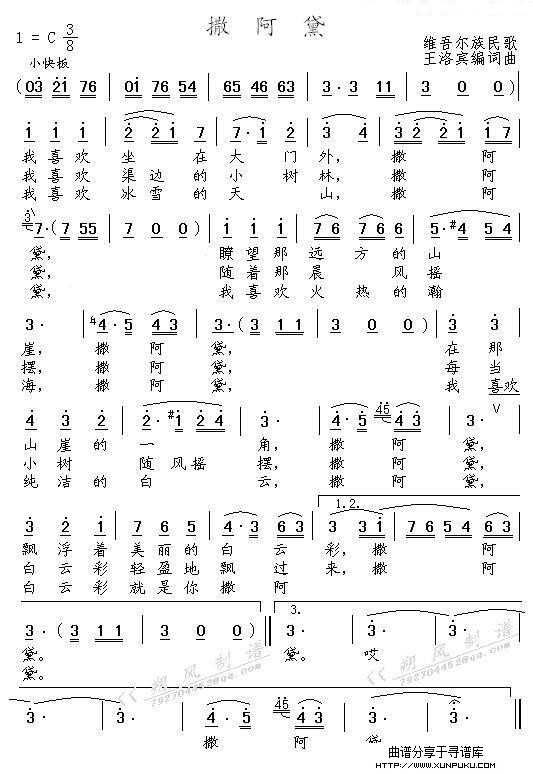 撒阿黛
1 = C 3/8
维吾尔族民歌
王洛宾编词曲
小快板
(03 21 76 | 01 76 54 | 3 65 63 | 3· 3 11 | 3 0 0)
1 1 1 | 2 2 1 7 | 7· 6 7 1 2 | 3 4 | 3 2 2 1 | 1 7
我喜欢 坐 在大门外, 撒 阿
我喜欢 渠边的小树林, 撒 阿
我喜欢 冰雪的天 山, 撒 阿
7· (7 55 | 7 0 0) | 1 1 1 | 7 6 7 1 7 6 | 5·#4 5 4
黛, 瞭望那远方的山
黛, 随着那晨 风摇
黛, 我喜欢火热的瀚
3· | 4·5 43 | 3· (3 11 | 3 0 0) | 3 3
崖, 撒阿黛, 在那
摆, 撒阿黛, 每当
海, 撒阿黛, 我喜欢
4 3 2 | 2·#1 2 4 | 3· | 4·5 43 | 3·
山崖的一 角, 撒 阿 黛,
小树 随风摇 摆, 撒 阿 黛,
纯洁的白 云, 撒 阿 黛,
1.2.
3 2 1 | 7 6 5 | 4·3 63 | 3 3 1 | 7 6 5 4
飘浮着美丽的白云 彩, 撒 阿
白云彩轻盈地飘过 来, 撒 阿
白云彩就是你撒 阿
3.
3· (3 11 | 3 0 0) | 3· | 3· | 3·
黛。 黛。 哎
黛。
朔风制谱
792704452@qq.com
朔风制谱
792704452@qq.com
3· | 3· | 4·5 43 | 3· | 3·
撒 阿 黛
曲谱分享于寻谱库
HTTP://WWW.XUNPUKU.COM